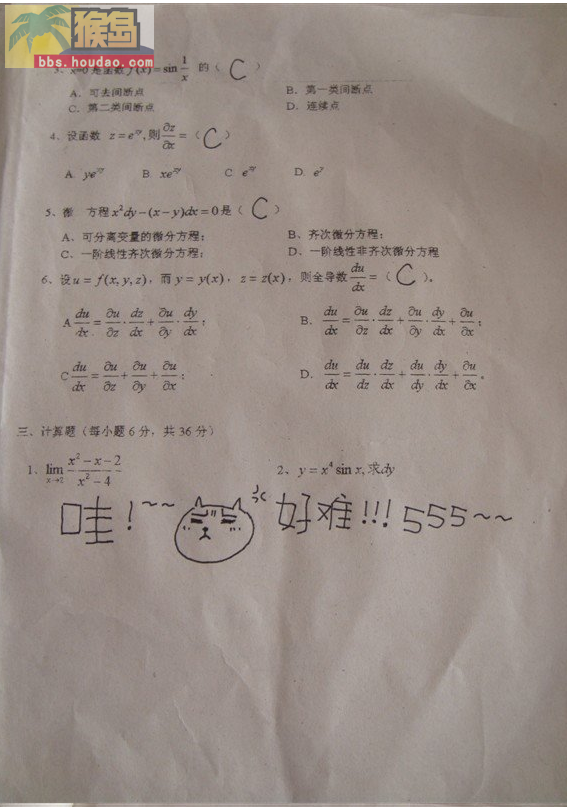 猴岛
bbs.houdao.com
3、x=0 是函数 f(x)=sin 1/x 的（ C ）
A、可去间断点 B、第一类间断点
C、第二类间断点 D、连续点
4、设函数 z=e^{xy},则 ∂z/∂x =（ C ）
A. ye^{xy} B. xe^{xy} C. e^{xy} D. e^y
5、微 方程 x²dy-(x-y)dx=0是（ C ）
A、可分离变量的微分方程； B、齐次微分方程；
C、一阶线性齐次微分方程； D、一阶线性非齐次微分方程
6、设u=f(x,y,z)，而 y=y(x)，z=z(x)，则全导数 du/dx =（ C ）。
A du/dx = ∂u/∂z · dz/dx + ∂u/∂y · dy/dx； B. du/dx = ∂u/∂z · dz/dx + ∂u/∂y · dy/dx + ∂u/∂x；
C du/dx = ∂u/∂z + ∂u/∂y + ∂u/∂x； D. du/dx = du/dz · dz/dx + du/dy · dy/dx + ∂u/∂x。
三、计算题（每小题6分，共36分）
1、lim x→2 (x²-x-2)/(x²-4) 2、y=x⁴ sin x,求dy
哇！~~ 好难!!! 555~~